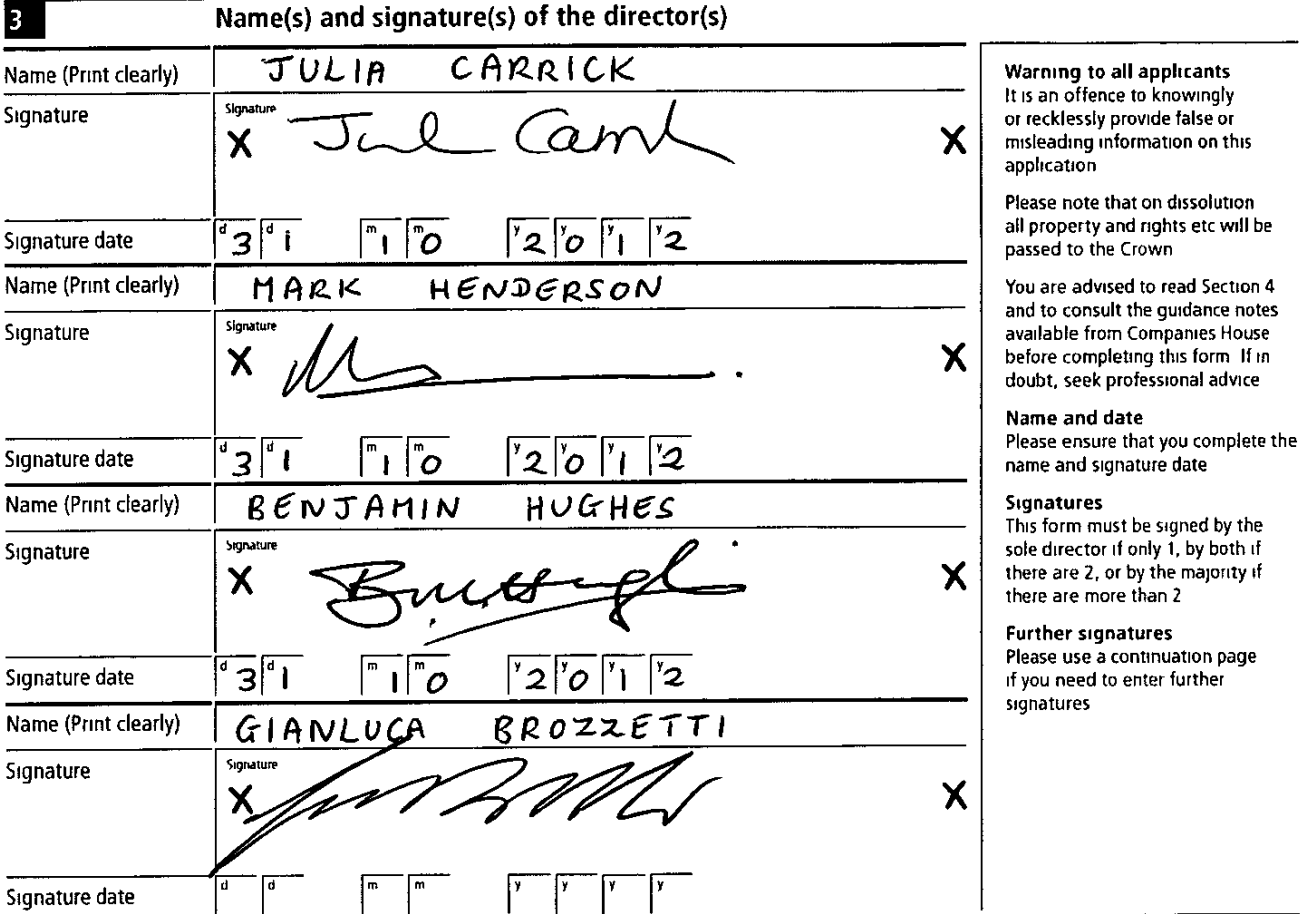 3 Name(s) and signature(s) of the director(s)
Name (Print clearly) JULIA CARRICK
Signature
Signature
X X
Signature date d3 d1 m1 m0 y2 y0 y1 y2
Name (Print clearly) MARK HENDERSON
Signature
Signature
X X
Signature date d3 d1 m1 m0 y2 y0 y1 y2
Name (Print clearly) BENJAMIN HUGHES
Signature
Signature
X X
Signature date d3 d1 m1 m0 y2 y0 y1 y2
Name (Print clearly) GIANLUCA BROZZETTI
Signature
Signature
X X
Signature date d d m m y y y y
Warning to all applicants
It is an offence to knowingly
or recklessly provide false or
misleading information on this
application
Please note that on dissolution
all property and rights etc will be
passed to the Crown
You are advised to read Section 4
and to consult the guidance notes
available from Companies House
before completing this form If in
doubt, seek professional advice
Name and date
Please ensure that you complete the
name and signature date
Signatures
This form must be signed by the
sole director if only 1, by both if
there are 2, or by the majority if
there are more than 2
Further signatures
Please use a continuation page
if you need to enter further
signatures